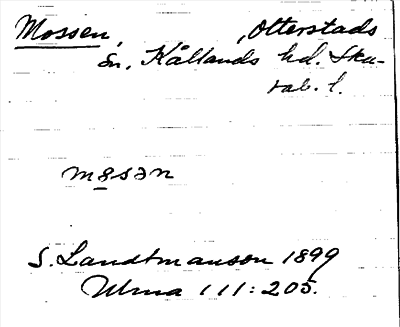 Mossen, Otterstads
sn, Kållands hd. Ska-
rab. l.
måsən
S. Landtmanson 1899
Ulma 111:205.